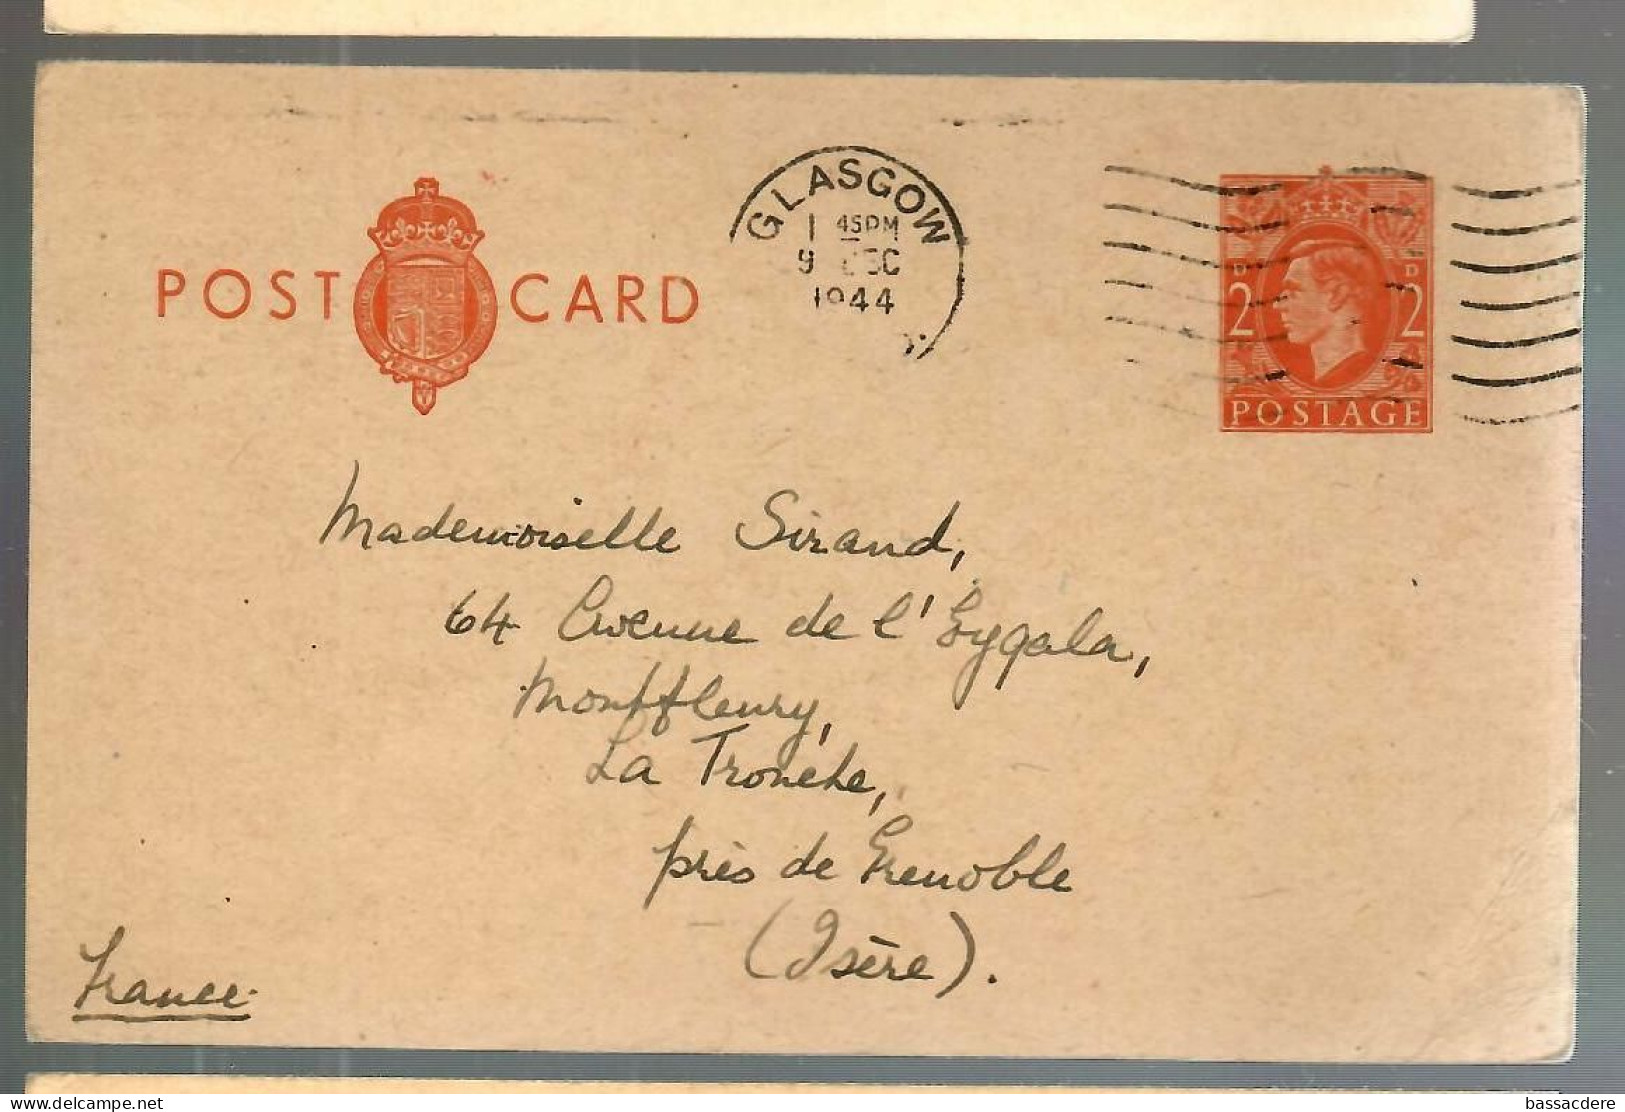 POST CARD
GLASGOW
1 45PM
9 DEC
1944
D D
2 2
POSTAGE
Mademoiselle Sirand,
64 Avenue de l'Eygala,
Montfleury,
La Tronche,
près de Grenoble
(Isère).
France.
delcampe.net
bassacdere